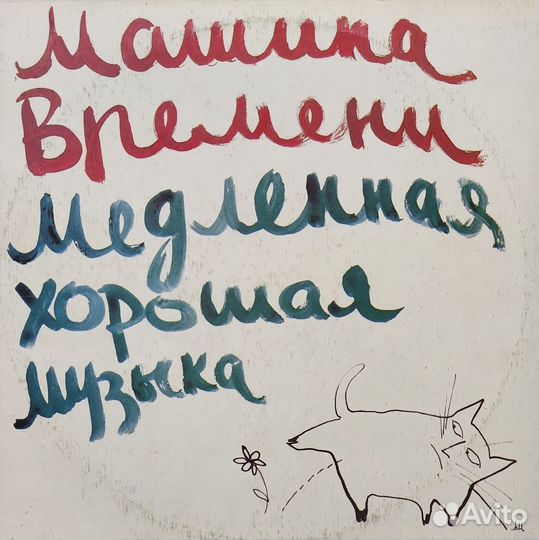 Машина
Времени
медленная
хорошая
музыка
АМ
Avito